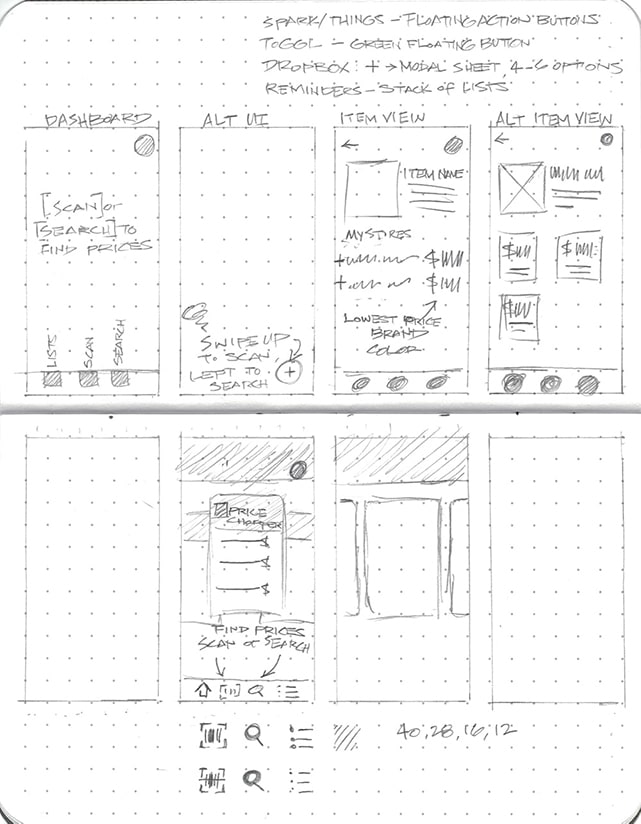 SPARK/THINGS – FLOATING ACTION BUTTONS
TOGGL – GREEN FLOATING BUTTON
DROPBOX: + → MODAL SHEET, 4-6 OPTIONS
REMINDERS – STACK OF LISTS
DASHBOARD
[SCAN] or
[SEARCH] TO
FIND PRICES
LISTS
SCAN
SEARCH
ALT UI
SWIPE UP
TO SCAN,
LEFT TO
SEARCH
+
ITEM VIEW
←
ITEM NAME
MY STORES
$
$
LOWEST PRICE
BRAND
COLOR
ALT ITEM VIEW
←
$
$
$
PRICE
CHOPPER
FIND PRICES
SCAN or SEARCH
40, 28, 16, 12